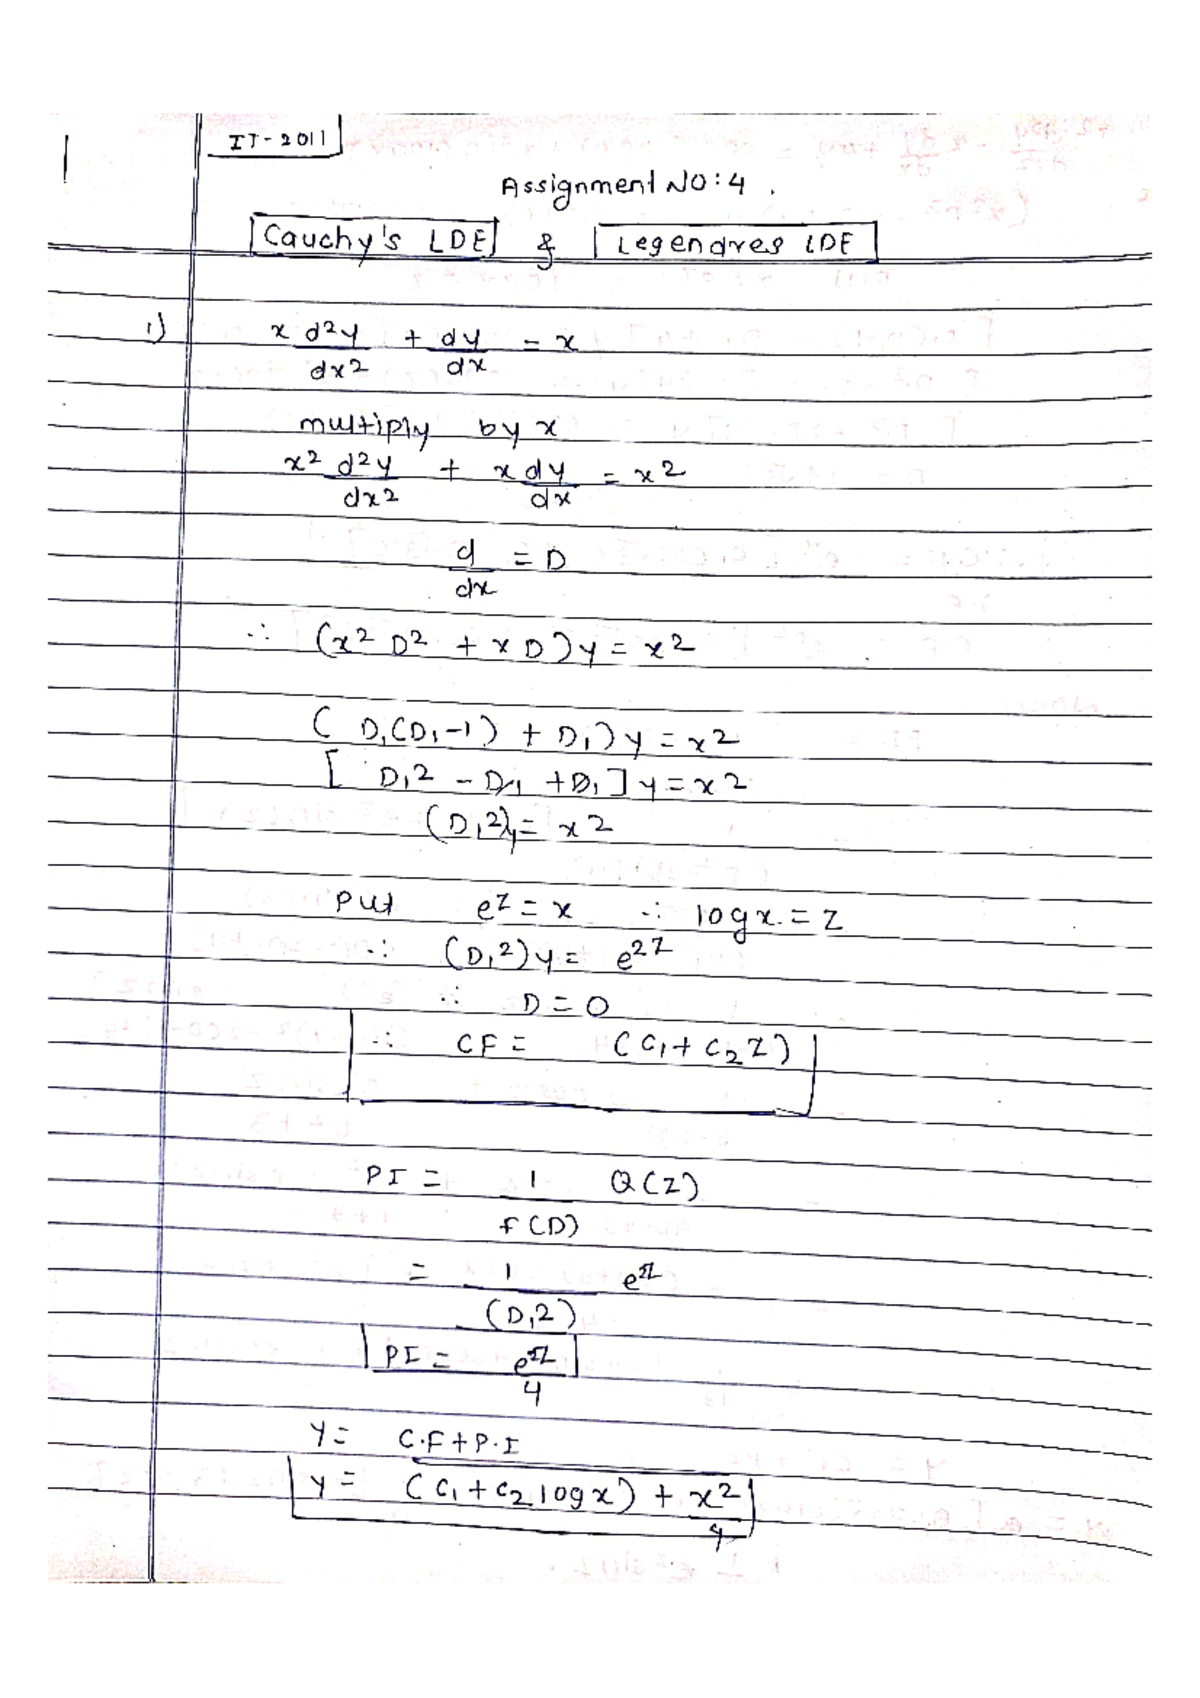 IT-2011
Assignment NO:4.
Cauchy's LDE & Legendres LDE
1) x d²y/dx² + dy/dx = x
multiply by x
x² d²y/dx² + x dy/dx = x²
d/dx = D
∴ (x² D² + x D) y = x²
( D₁(D₁-1) + D₁) y = x²
[ D₁2 - D₁ + D₁ ] y = x2
(D₁2)y = x2
Put e^z = x ∴ log x. = z
∴ (D₁²) y = e^2z
∴ D = 0
∴ CF = (C₁ + C₂ Z)
PI = 1/f(D) Q(Z)
= 1/(D₁2) e^2z
PI = e^2z/4
Y = C.F + P.I
y = (C₁ + C₂ log x) + x²/4